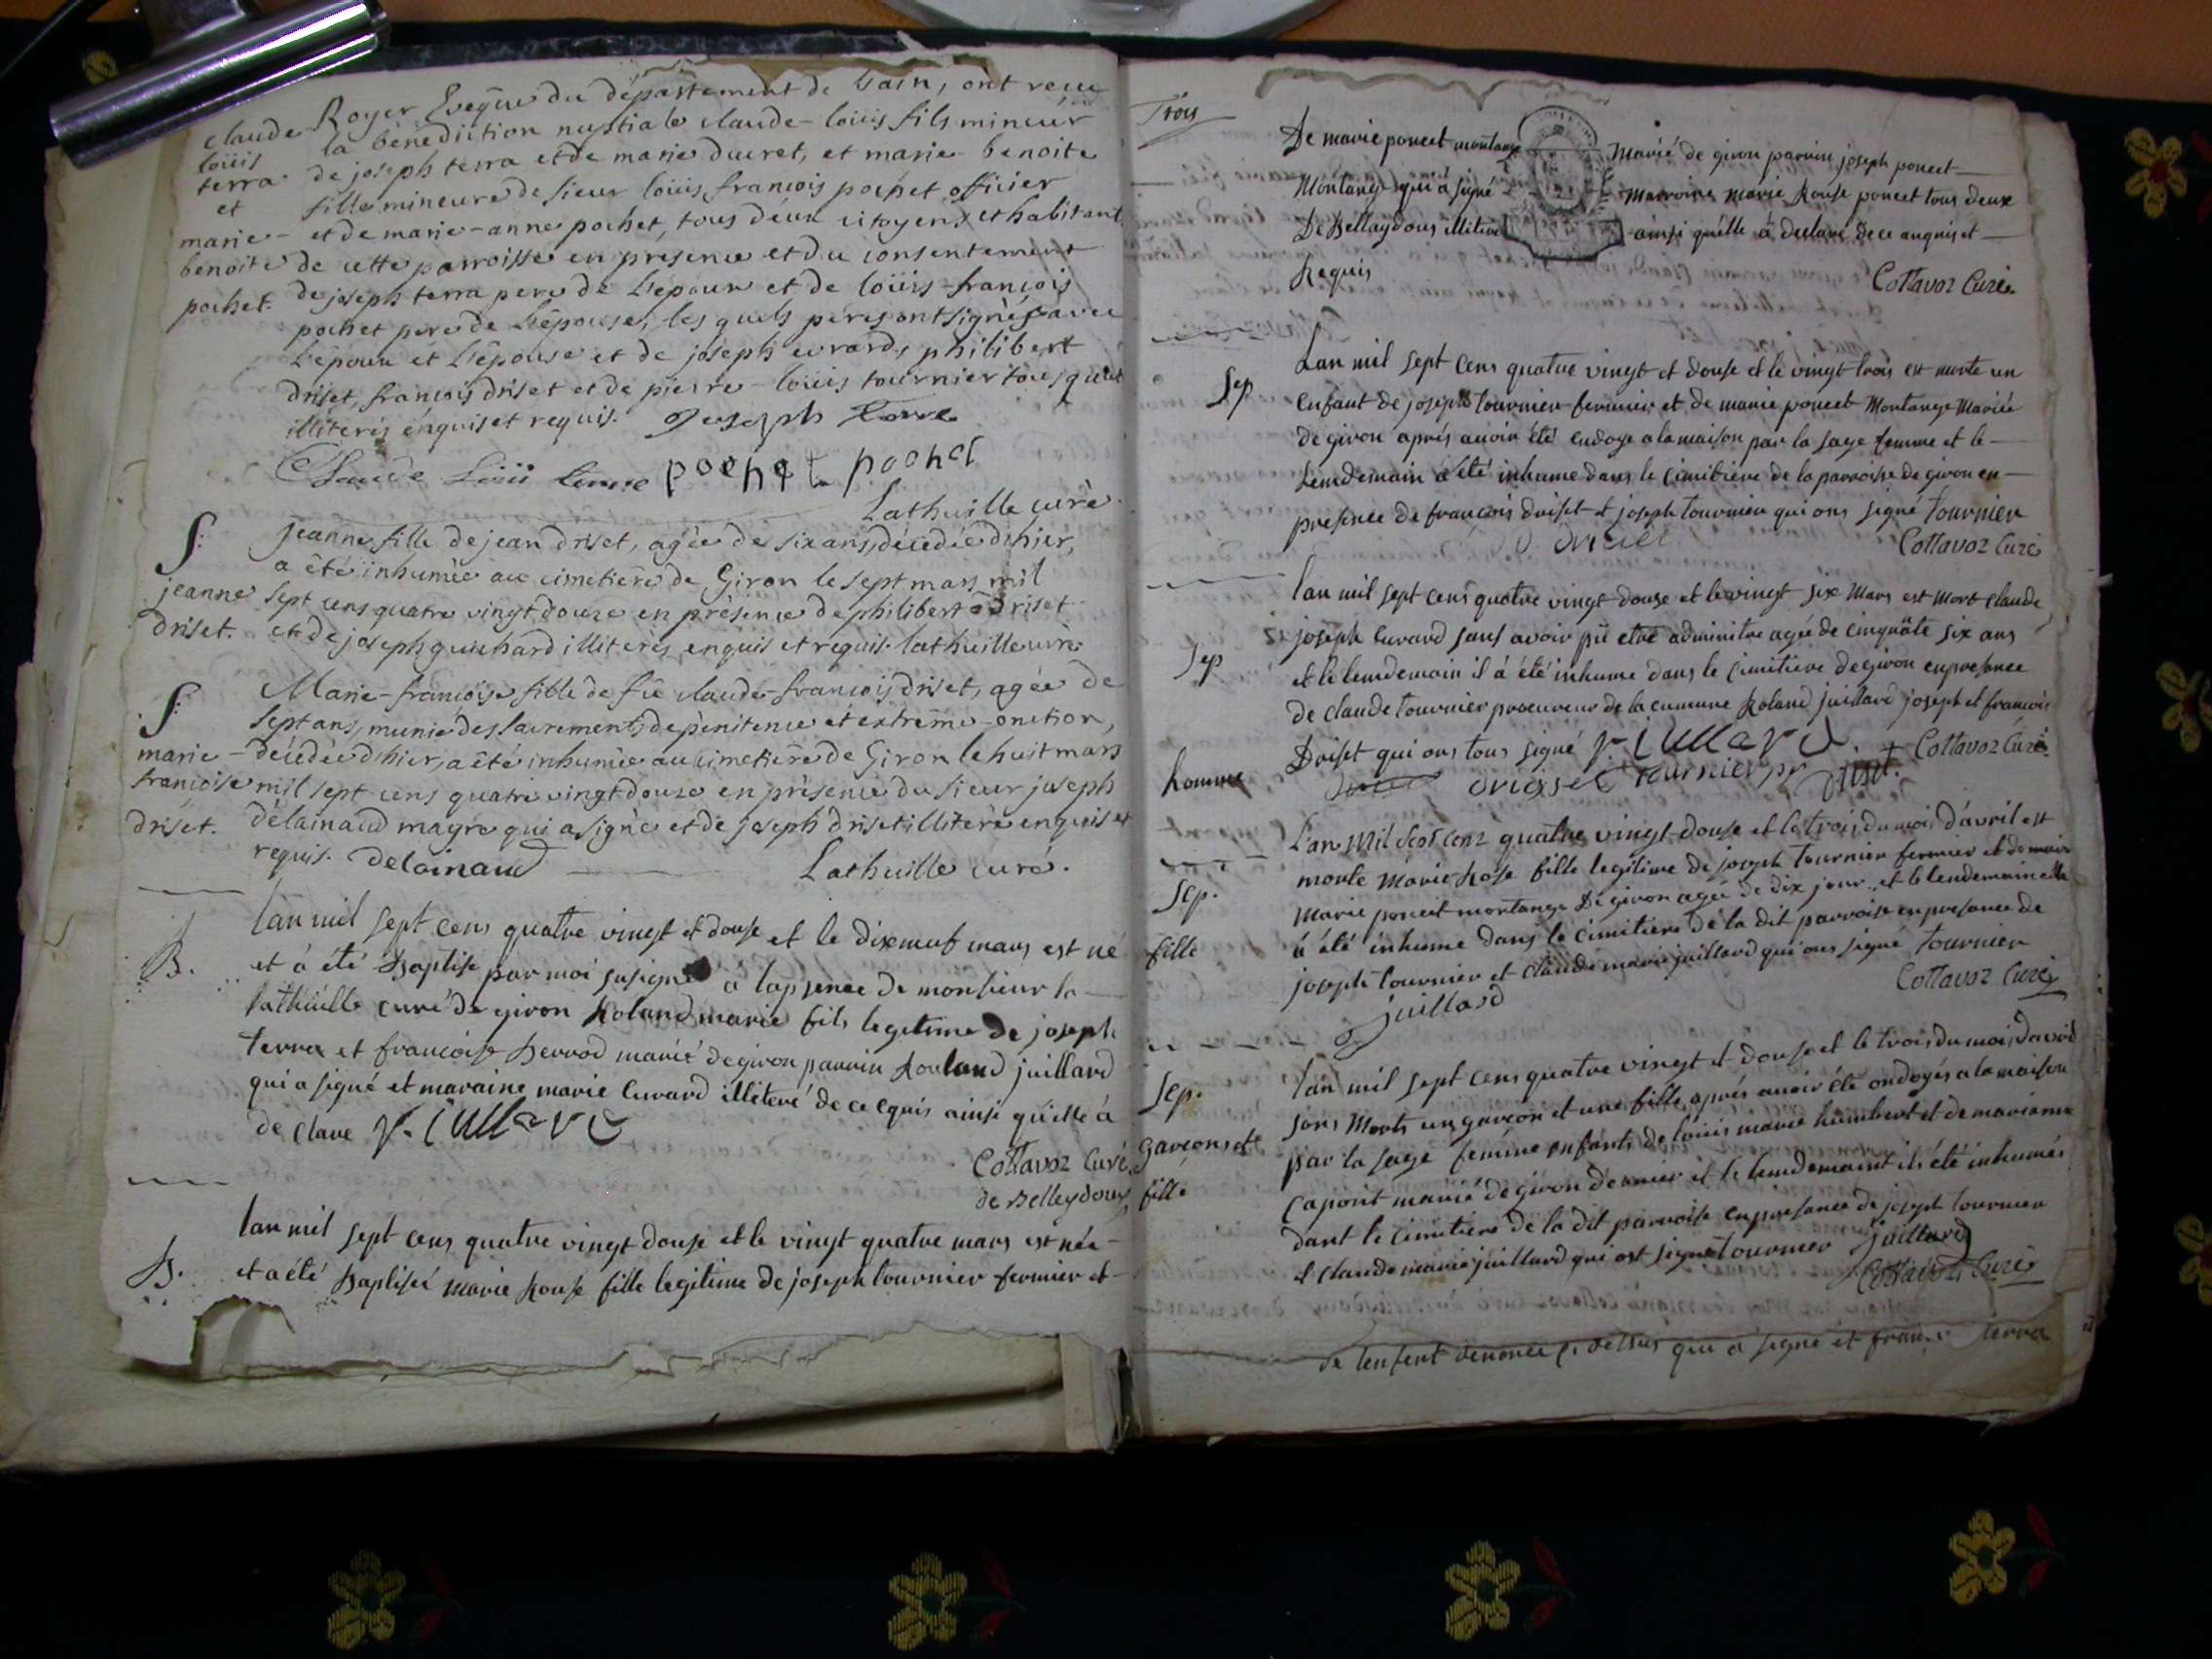 Royer Evêque du département de Lain, ont reçu
claude la bénédiction nuptiale claude-loüis fils mineur
loüis de joseph terra et de marie ducret, et marie benoite
terra fille mineure de sieur loüis françois pochet officier
et et de marie-anne pochet, tous deux citoyens et habitant
marie- de cette parroisse en presence et du consentement
benoite de joseph terra pere de L'epoux et de loüis-françois
pochet. pochet pere de L'épouse, les quels peres ont signés avec
L'époux et L'épouse et de joseph evrard, philibert
driset, françois driset et de pierre-loüis tournier tous quat
illiterés énquis et requis. Joseph Terra
Claude Loüi terra pochet pochet
Lathuille curé.
S. Jeanne fille de jean driset, agée de six ans, décédée d'hier,
a été inhumée au cimetière de Giron le sept mars mil
jeanne sept cens quatre vingt douze en présence de philibert driset
driset. et de joseph guichard illiterés enquis et requis. Lathuille curé
S. Marie-françoise fille de fû claude-françois driset, agée de
sept ans, munie des sacrements de pénitence et extrême-onction,
marie- décédée d'hier, a été inhumée au cimetière de Giron le huit mars
françoise mil sept cens quatre vingt douze en présence du sieur joseph
driset. délainaud mayre qui a signé et de joseph driset illiteré enquis et
requis. delainaud Lathuille curé.
B. lan mil sept cens quatre vingt et douse et le dixneuf mars est né
et à été Baptise par moi susigné à lapsence de monsieur la
lathuille curé de giron Roland marie fils legitime de joseph
terra et francoise Berrod marié de giron parrin Rouland juillard
qui a signé et maraine marie Evrard illiteré de ce equis ainsi quelle à
de clare r. iullard
Cottavoz Curé
de Belleydoux
B. lan mil sept cens quatre vingt douse et le vingt quatre mars est née
et a été Baptisée marie Rouse fille legitime de joseph tournier fermier et
Trois
De marie poncet montange marié de giron parrin joseph poncet
Montange qui à signé marroine marie Rouse poncet tous deux
De Bellaydous illiteré ainsi quelle à declaré de ce anquis et
Requis Cottavoz Curé
Lan mil sept cens quatre vingt et douse et le vingt trois est morte un
Sep Enfant de joseph tournier fermier et de marie poncet Montange Mariée
de giron aprés avoir été endoye a la maison par la sage femme et le
Lemdemain à été inhume dans le cimitiere de la parroisse de giron en
presence de françois driset et joseph tournier qui ons signé tournier
driset Cottavoz Curé
lan mil sept cens quatre vingt douse et le vingt six Mars est mort claude
joseph Evrard sans avoir pû etre adminitre agée de cinquäte six ans
Sep et le lemdemain il à été inhume dans le cimitiere de giron en presence
de claude tournier procureur de la cumune Roland juillard joseph et francois
Driset qui ons tous signé r. iullard. Cottavoz Curé
homme driset tournier pr driset.
L'an Mil Sept Cenz quatre vingt douse et le trois du mois d'avril est
morte marie Rose fille legitime de joseph tournier fermier et de marie
Sep. Marie poncet montange De giron agée de dix jour et le lendemain elle
fille à été inhume dans le cimitiere de la dit parroise en presance de
joseph tournier et claude marie juillard qui ons signé tournier
juillard Cottavoz Curé
Sep. lan mil sept cens quatre vingt et douse et le trois du mois davril
sons Morts un garcon et une fille aprés avoir été ondoyés a la maison
garcons et par la sage femme enfants de loüis marie humbert et de marianne
fille Capont marié de giron dernier et le lemdemaint ils été inhumés
dant le cimitiere de la dit parroise en presance de joseph tournier
et claude marie juillard qui ost signé tournier juillard
Cottavoz Curé
de lenfent denomé ci dessus qui a signé et terra